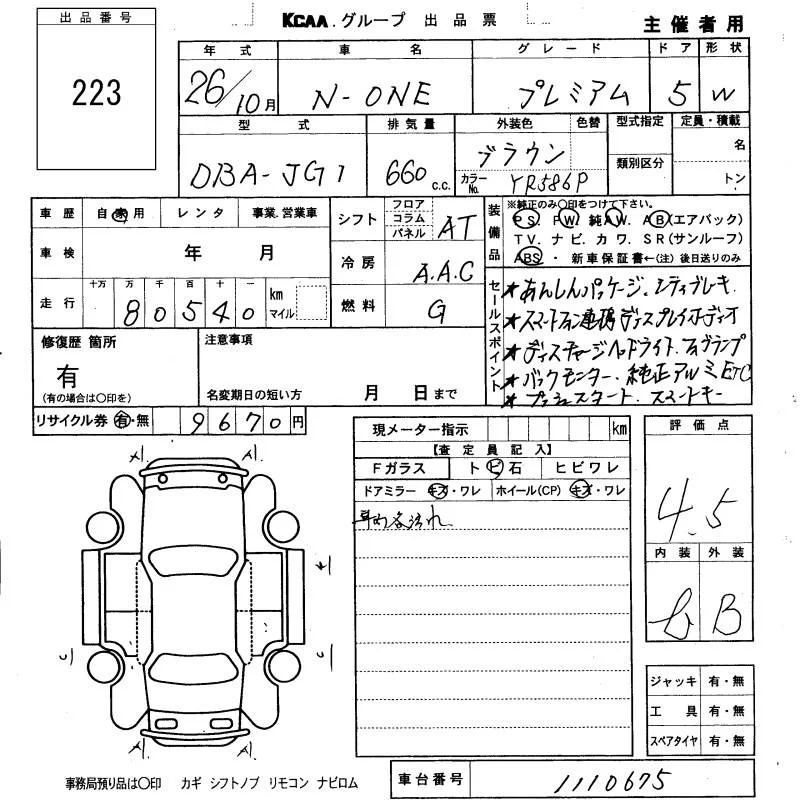 出品番号
223
KCAA.グループ 出品票
主催者用
年式 車名 グレード ドア 形状
26/10月 N-ONE プレミアム 5 W
型式 排気量 外装色 色替 型式指定 定員・積載
DBA-JG1 660 c.c. ブラウン 名
カラーNo. YR586P 類別区分 トン
車歴 自家用 レンタ 事業.営業車
車検 年 月
走行 十万 万 千 百 十 一
80540 km マイル
シフト フロア コラム パネル AT
冷房 A.A.C
燃料 G
装備品
※純正のみ〇印をつけて下さい。
PS. PW. 純AW. AB(エアバック)
TV. ナビ. カワ. SR(サンルーフ)
ABS・ 新車保証書←(注)後日送りのみ
セールスポイント
★あんしんパッケージ、シティブレーキ
★スマートフォン連携ディスプレイオーディオ
★ディスチャージヘッドライト、フォグランプ
★バックモニター、純正アルミ ETC
★プッシュスタート、スマートキー
修復歴 箇所
有
(有の場合は〇印を)
注意事項
名変期日の短い方 月 日まで
リサイクル券 有・無 9670円
現メーター指示 km
【査定員記入】
Fガラス トビ石 ヒビワレ
ドアミラー キズ・ワレ ホイール(CP) キズ・ワレ
車内
評価点
4.5
内装 外装
b B
A1 A1
A1 A1
ジャッキ 有・無
工具 有・無
スペアタイヤ 有・無
事務局預り品は〇印 カギ シフトノブ リモコン ナビロム
車台番号 1110675